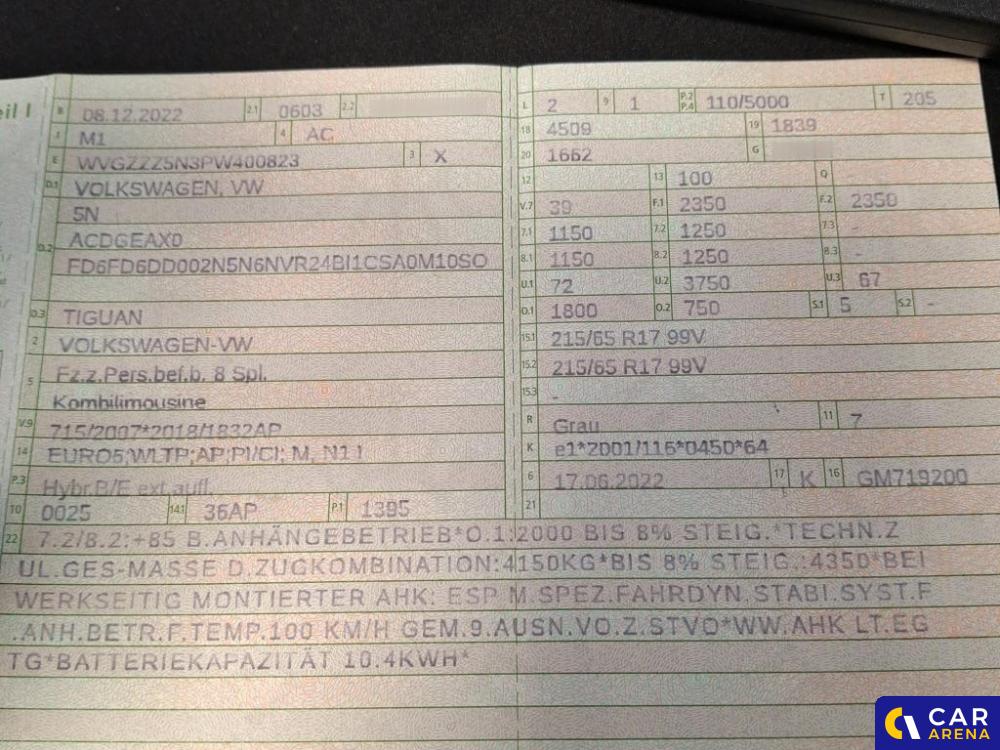 eil I
B 08.12.2022 2.1 0603 2.2
J M1 4 AC
E WVGZZZ5N3PW400823 3 X
D.1 VOLKSWAGEN, VW
D.2 5N
ACDGEAX0
FD6FD6DD002N5N6NVR24BI1CSA0M10SO
D.3 TIGUAN
2 VOLKSWAGEN-VW
5 Fz.z.Pers.bef.b. 8 Spl.
Kombilimousine
V.9 715/2007*2018/1832AP
14 EURO6;WLTP;AP;PI/CI; M, N1 I
P.3 Hybr.B/E ext.aufl.
10 0025 14.1 36AP P.1 1395
L 2 9 1 P.2 P.4 110/5000 T 205
18 4509 19 1839
20 1662 G
12 13 100 Q
V.7 39 F.1 2350 F.2 2350
7.1 1150 7.2 1250 7.3 -
8.1 1150 8.2 1250 8.3 -
U.1 72 U.2 3750 U.3 67
O.1 1800 O.2 750 S.1 5 S.2 -
15.1 215/65 R17 99V
15.2 215/65 R17 99V
15.3 -
R Grau 11 7
K e1*2001/116*0450*64
6 17.06.2022 17 K 16 GM719200
21
22 7.2/8.2:+85 B.ANHÄNGEBETRIEB*O.1:2000 BIS 8% STEIG.*TECHN.Z
UL.GES-MASSE D.ZUGKOMBINATION:4150KG*BIS 8% STEIG.:4350*BEI
WERKSEITIG MONTIERTER AHK: ESP M.SPEZ.FAHRDYN.STABI.SYST.F
.ANH.BETR.F.TEMP.100 KM/H GEM.9.AUSN.VO.Z.STVO*WW.AHK LT.EG
TG*BATTERIEKAPAZITÄT 10.4KWH*
CAR
ARENA